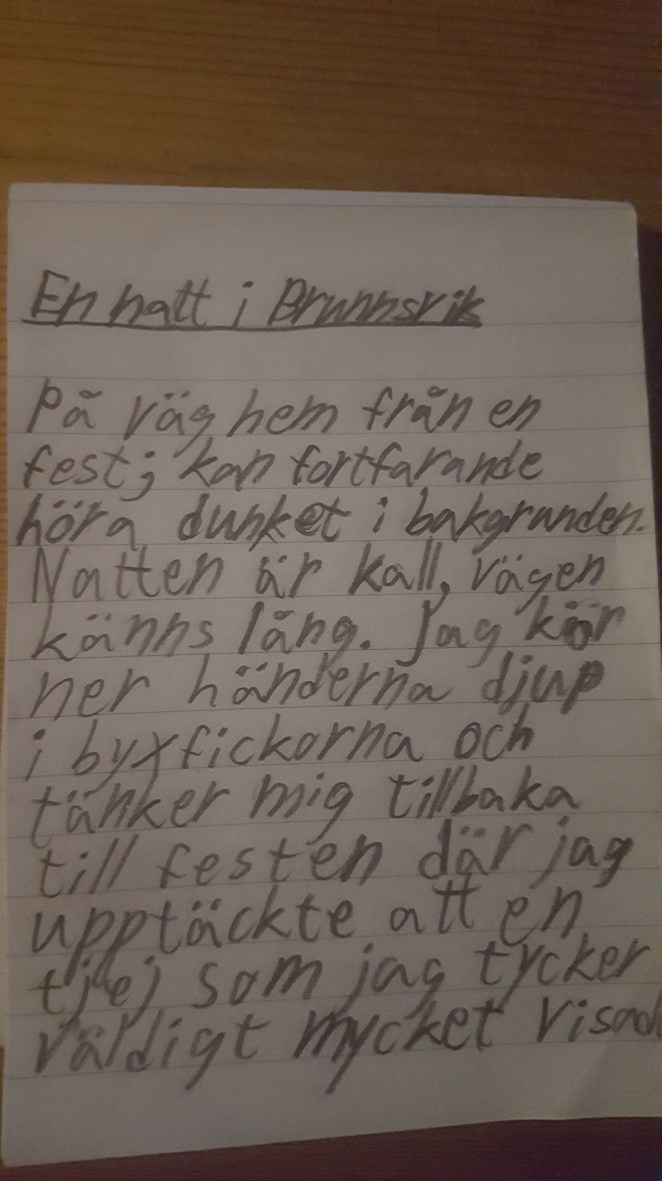 En natt i Brunnsvik
På väg hem från en
fest; kan fortfarande
höra dunket i bakgrunden.
Natten är kall, vägen
känns lång. Jag kör
ner händerna djup
i byxfickorna och
tänker mig tillbaka
till festen där jag
upptäckte att en
tjej som jag tycker
väldigt mycket visad